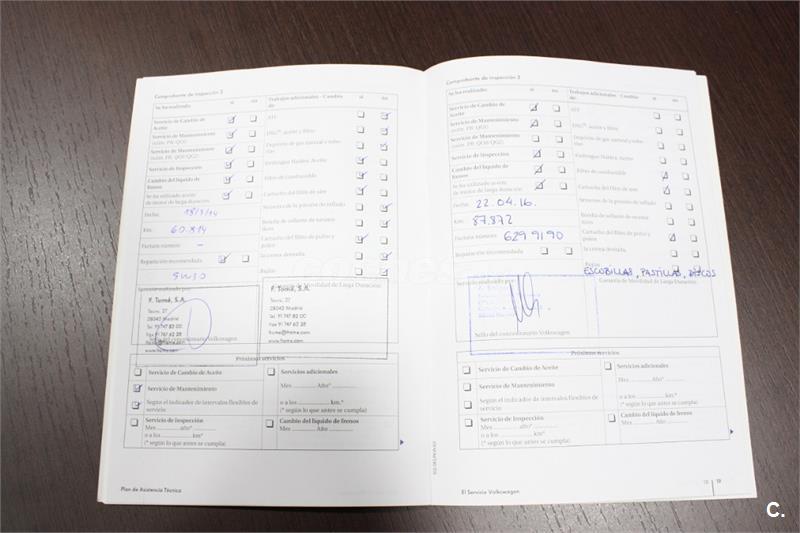 Comprobante de inspección 2
Se ha realizado: sí no
Trabajos adicionales - Cambio de: sí no
Servicio de Cambio de Aceite
Servicio de Mantenimiento
Servicio de Mantenimiento
Servicio de Inspección
Cambio del líquido de frenos
Se ha utilizado aceite de motor de larga duración
Fecha: 18/3/14
Km: 60.814
Factura número: -
Reparación recomendada
ATF
Depósito de gas natural y
Embrague Haldex: Aceite
Filtro de combustible
Cartucho del filtro de aire
Sensores de la presión de inflado
Cartucho del filtro de polvo y polen
Correa dentada
Bujías
Servicio realizado por:
Movilidad de Larga Duración
F. Tomé, S.A.
28042 Madrid
Tel. 91 747 82 00
Fax 91 747 62 28
www.ftome.com
F. Tomé, S.A.
28042 Madrid
Tel. 91 747 82 00
Fax 91 747 62 28
ftome@ftome.com
www.ftome.com
Próximos servicios
Servicio de Cambio de Aceite
Servicio de Mantenimiento
Según el indicador de intervalos flexibles de servicio
Servicio de Inspección
Mes año*
o a los km*
(* según lo que antes se cumpla)
Servicios adicionales
Mes Año*
o a los km.*
(* según lo que antes se cumpla)
Cambio del líquido de frenos
Mes Año
Plan de Asistencia Técnica
Comprobante de inspección 3
Se ha realizado: sí no
Trabajos adicionales - Cambio de: sí no
Servicio de Cambio de Aceite
Servicio de Mantenimiento
Servicio de Mantenimiento
Servicio de Inspección
Cambio del líquido de frenos
Se ha utilizado aceite de motor de larga duración
Fecha: 22.04.16.
Km: 87.872
Factura número: 6299190
Reparación recomendada
ATF
Depósito de gas natural y
Embrague Haldex: Aceite
Filtro de combustible
Cartucho del filtro de aire
Sensores de la presión de inflado
Cartucho del filtro de polvo y polen
Correa dentada
Bujías
ESCOBILLAS, PASTILLAS, DISCOS
Servicio realizado por:
Garantía de Movilidad de Larga Duración
Sello del concesionario Volkswagen
Próximos servicios
Servicio de Cambio de Aceite
Servicio de Mantenimiento
Según el indicador de intervalos flexibles de servicio
Servicio de Inspección
Mes año*
o a los km*
(* según lo que antes se cumpla)
Servicios adicionales
Mes Año*
o a los km.*
(* según lo que antes se cumpla)
Cambio del líquido de frenos
Mes Año
El Servicio Volkswagen
19
C.